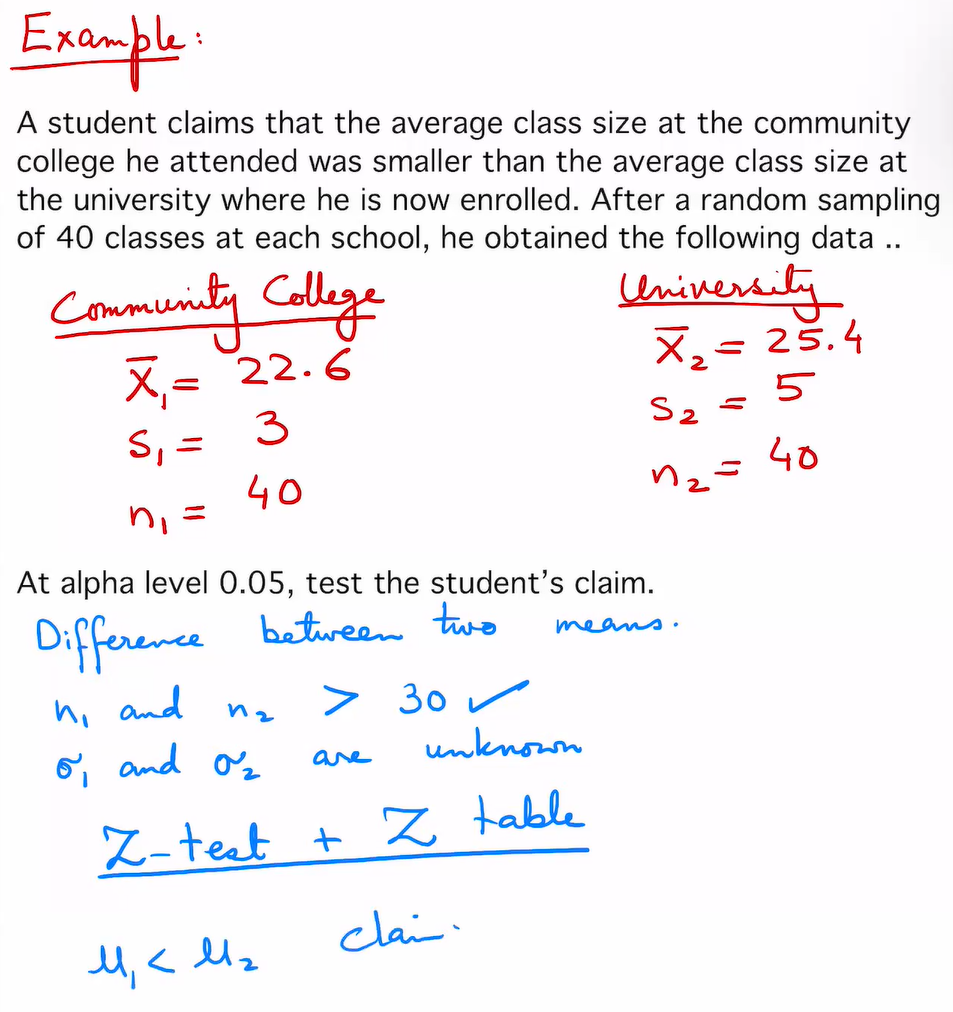 Example:
A student claims that the average class size at the community
college he attended was smaller than the average class size at
the university where he is now enrolled. After a random sampling
of 40 classes at each school, he obtained the following data ..
Community College
x̄₁ = 22.6
s₁ = 3
n₁ = 40
University
x̄₂ = 25.4
s₂ = 5
n₂ = 40
At alpha level 0.05, test the student’s claim.
Difference between two means.
n₁ and n₂ > 30 ✓
σ₁ and σ₂ are unknown
Z-test + Z table
μ₁ < μ₂ clai.